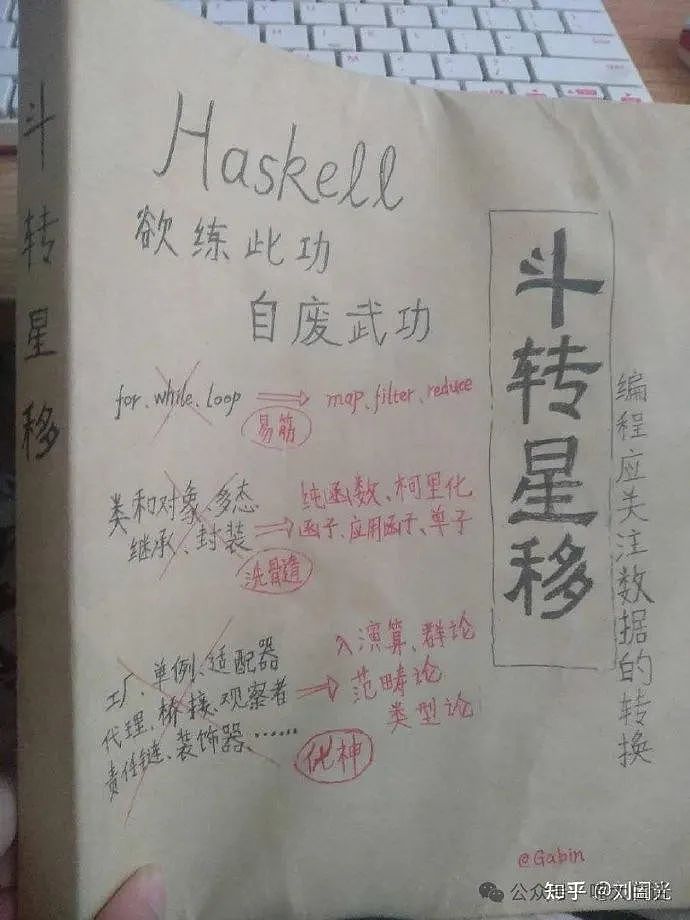 斗转星移
Haskell
欲练此功
自废武功
for、while、loop ⟹ map、filter、reduce
易筋
类和对象、多态
继承、封装 ⟹
纯函数、柯里化
函子、应用函子、单子
洗髓
工厂、单例、适配器
代理、桥接、观察者 ⟹
责任链、装饰器、……
入演算、群论
范畴论
类型论
化神
斗转星移
编程应关注数据的转换
@Gabin
知乎 @刘闽光
公众号